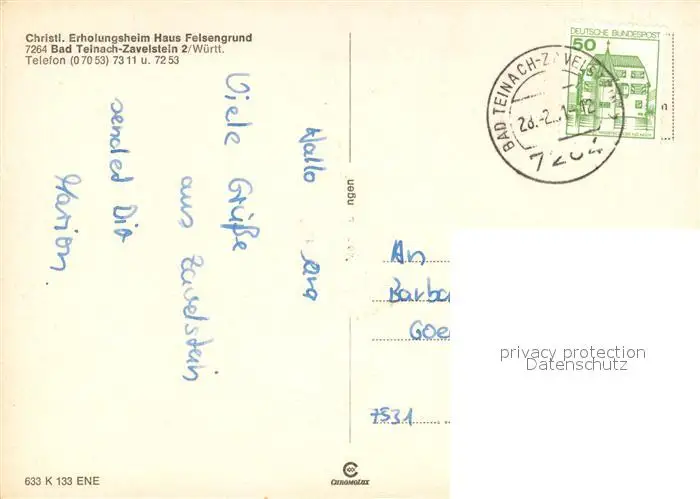 Christl. Erholungsheim Haus Felsengrund
7264 Bad Teinach-Zavelstein 2/Württ.
Telefon (0 70 53) 73 11 u. 72 53
Hallo
Viele Grüße
aus Zavelstein
sendet Dir
Marion.
ngen
DEUTSCHE BUNDESPOST
50
BAD TEINACH-ZAVELSTEIN
28.-2. -12
7264
An
Barba
Goe
7531
privacy protection
Datenschutz
633 K 133 ENE
CHROMOLUX